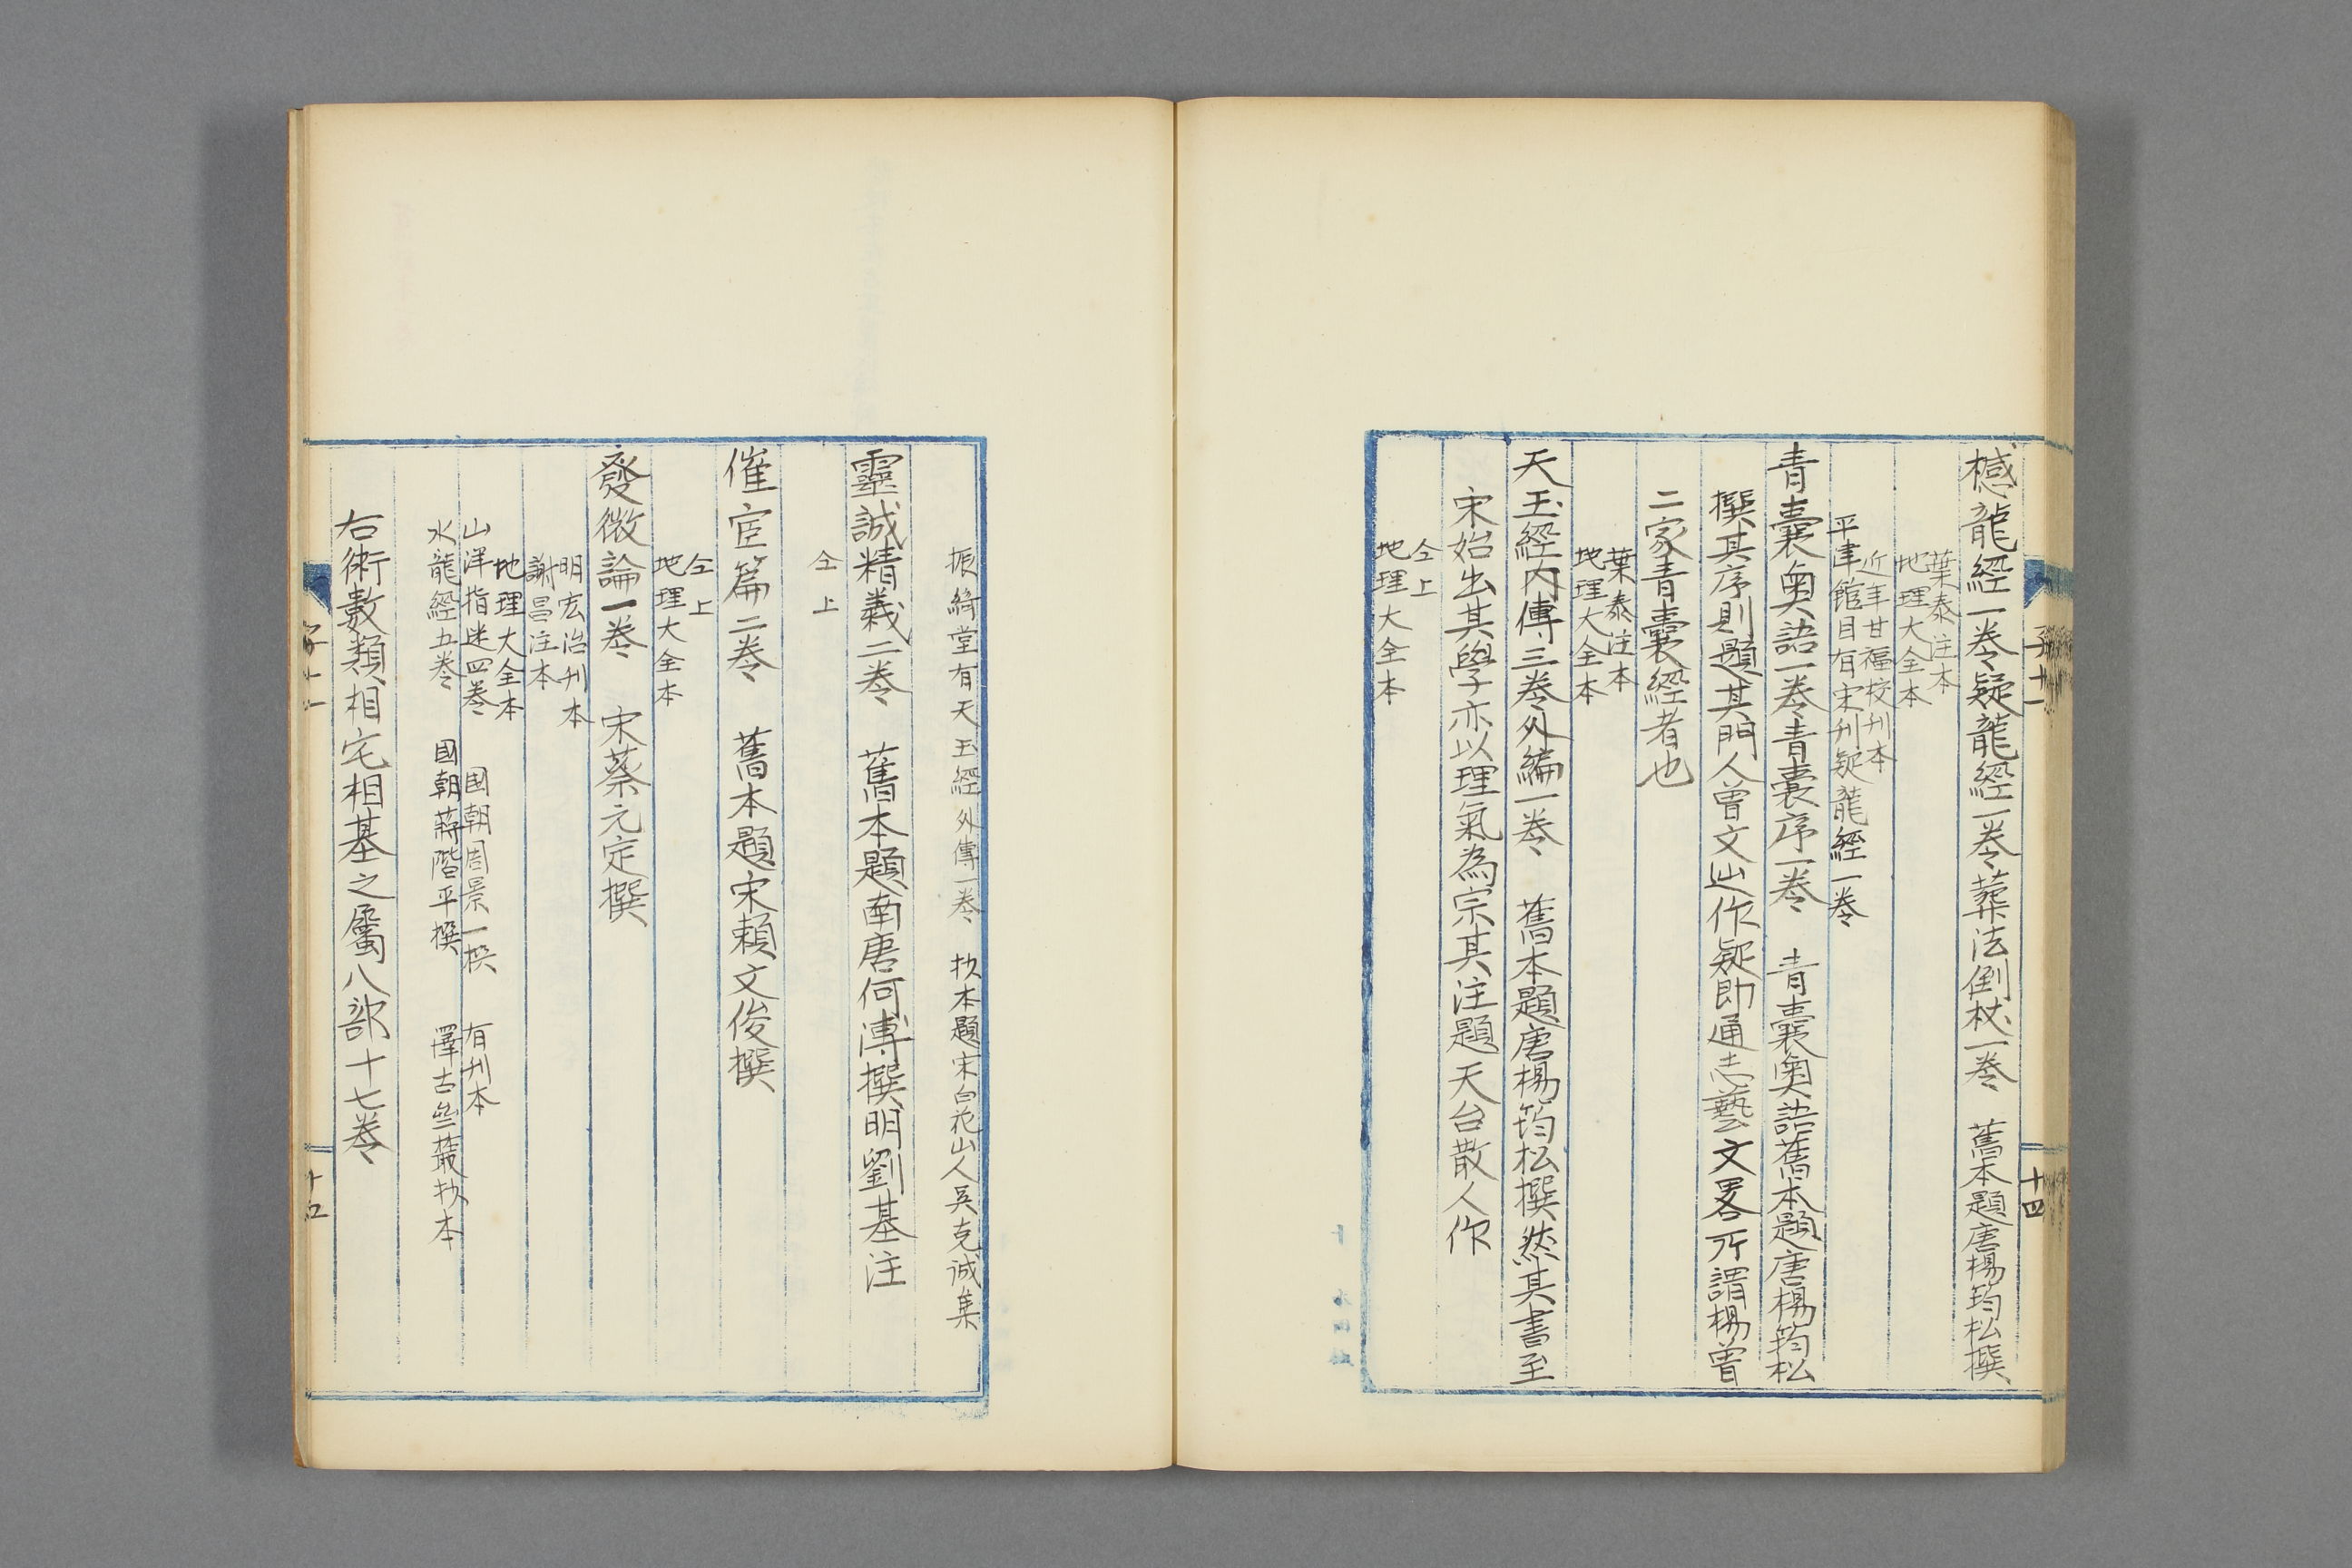 子十一
十四
撼龍經一卷疑龍經一卷葬法倒杖一卷　舊本題唐楊筠松撰
葉泰注本
地理大全本
近年甘福校刊本
平津館目有宋刊疑龍經一卷
青囊奧語一卷青囊序一卷　青囊奧語舊本題唐楊筠松
撰其序則題其門人曾文辿作疑即通志藝文畧所謂楊曾
二家青囊經者也
葉泰注本
地理大全本
天玉經內傳三卷外編一卷　舊本題唐楊筠松撰然其書至
宋始出其學亦以理氣為宗其注題天台散人作
仝上
地理大全本
振綺堂有天玉經外傳一卷　抄本題宋白花山人吳克誠集
靈誠精義二卷　舊本題南唐何溥撰明劉基注
仝上
催官篇二卷　舊本題宋賴文俊撰
仝上
地理大全本
發微論一卷　宋蔡元定撰
明宏治刊本
謝昌注本
地理大全本
山洋指迷四卷　國朝周景一撰　有刊本
水龍經五卷　國朝蔣階平撰　澤古叢抄本
右術數類相宅相墓之屬八部十七卷
子十一
十四